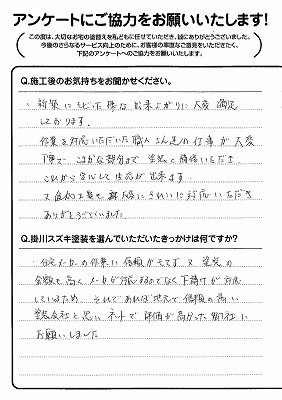 アンケートにご協力をお願いいたします!
この度は、大切なお宅の塗替えを私どもに任せていただき、誠にありがとうございました。
今後のさらなるサービス向上のために、お客様の率直なご意見をいただきたく、
下記のアンケートへのご協力をお願いいたします。
Q.施工後のお気持ちをお聞かせください。
・新築にもどった様な出来上がりに大変満足
しております。
作業を対応いただいた職人さん達の仕事が大変
丁寧で こまかな部分まで 塗装と補修いただき
これから安心して生活が出来ます。
又追加工事も 親切に きれいに対応いただき
ありがとうございました。
Q.掛川スズキ塗装を選んでいただいたきっかけは何ですか?
・住宅メーカーの作業に信頼がもてず、又 塗装の
金額も高く、メーカが対応するのでなく下請けが対応
しているため、それであれば地元で信頼の高い
塗装会社と思い ネットで 評価が高かった 御社に
お願いしました